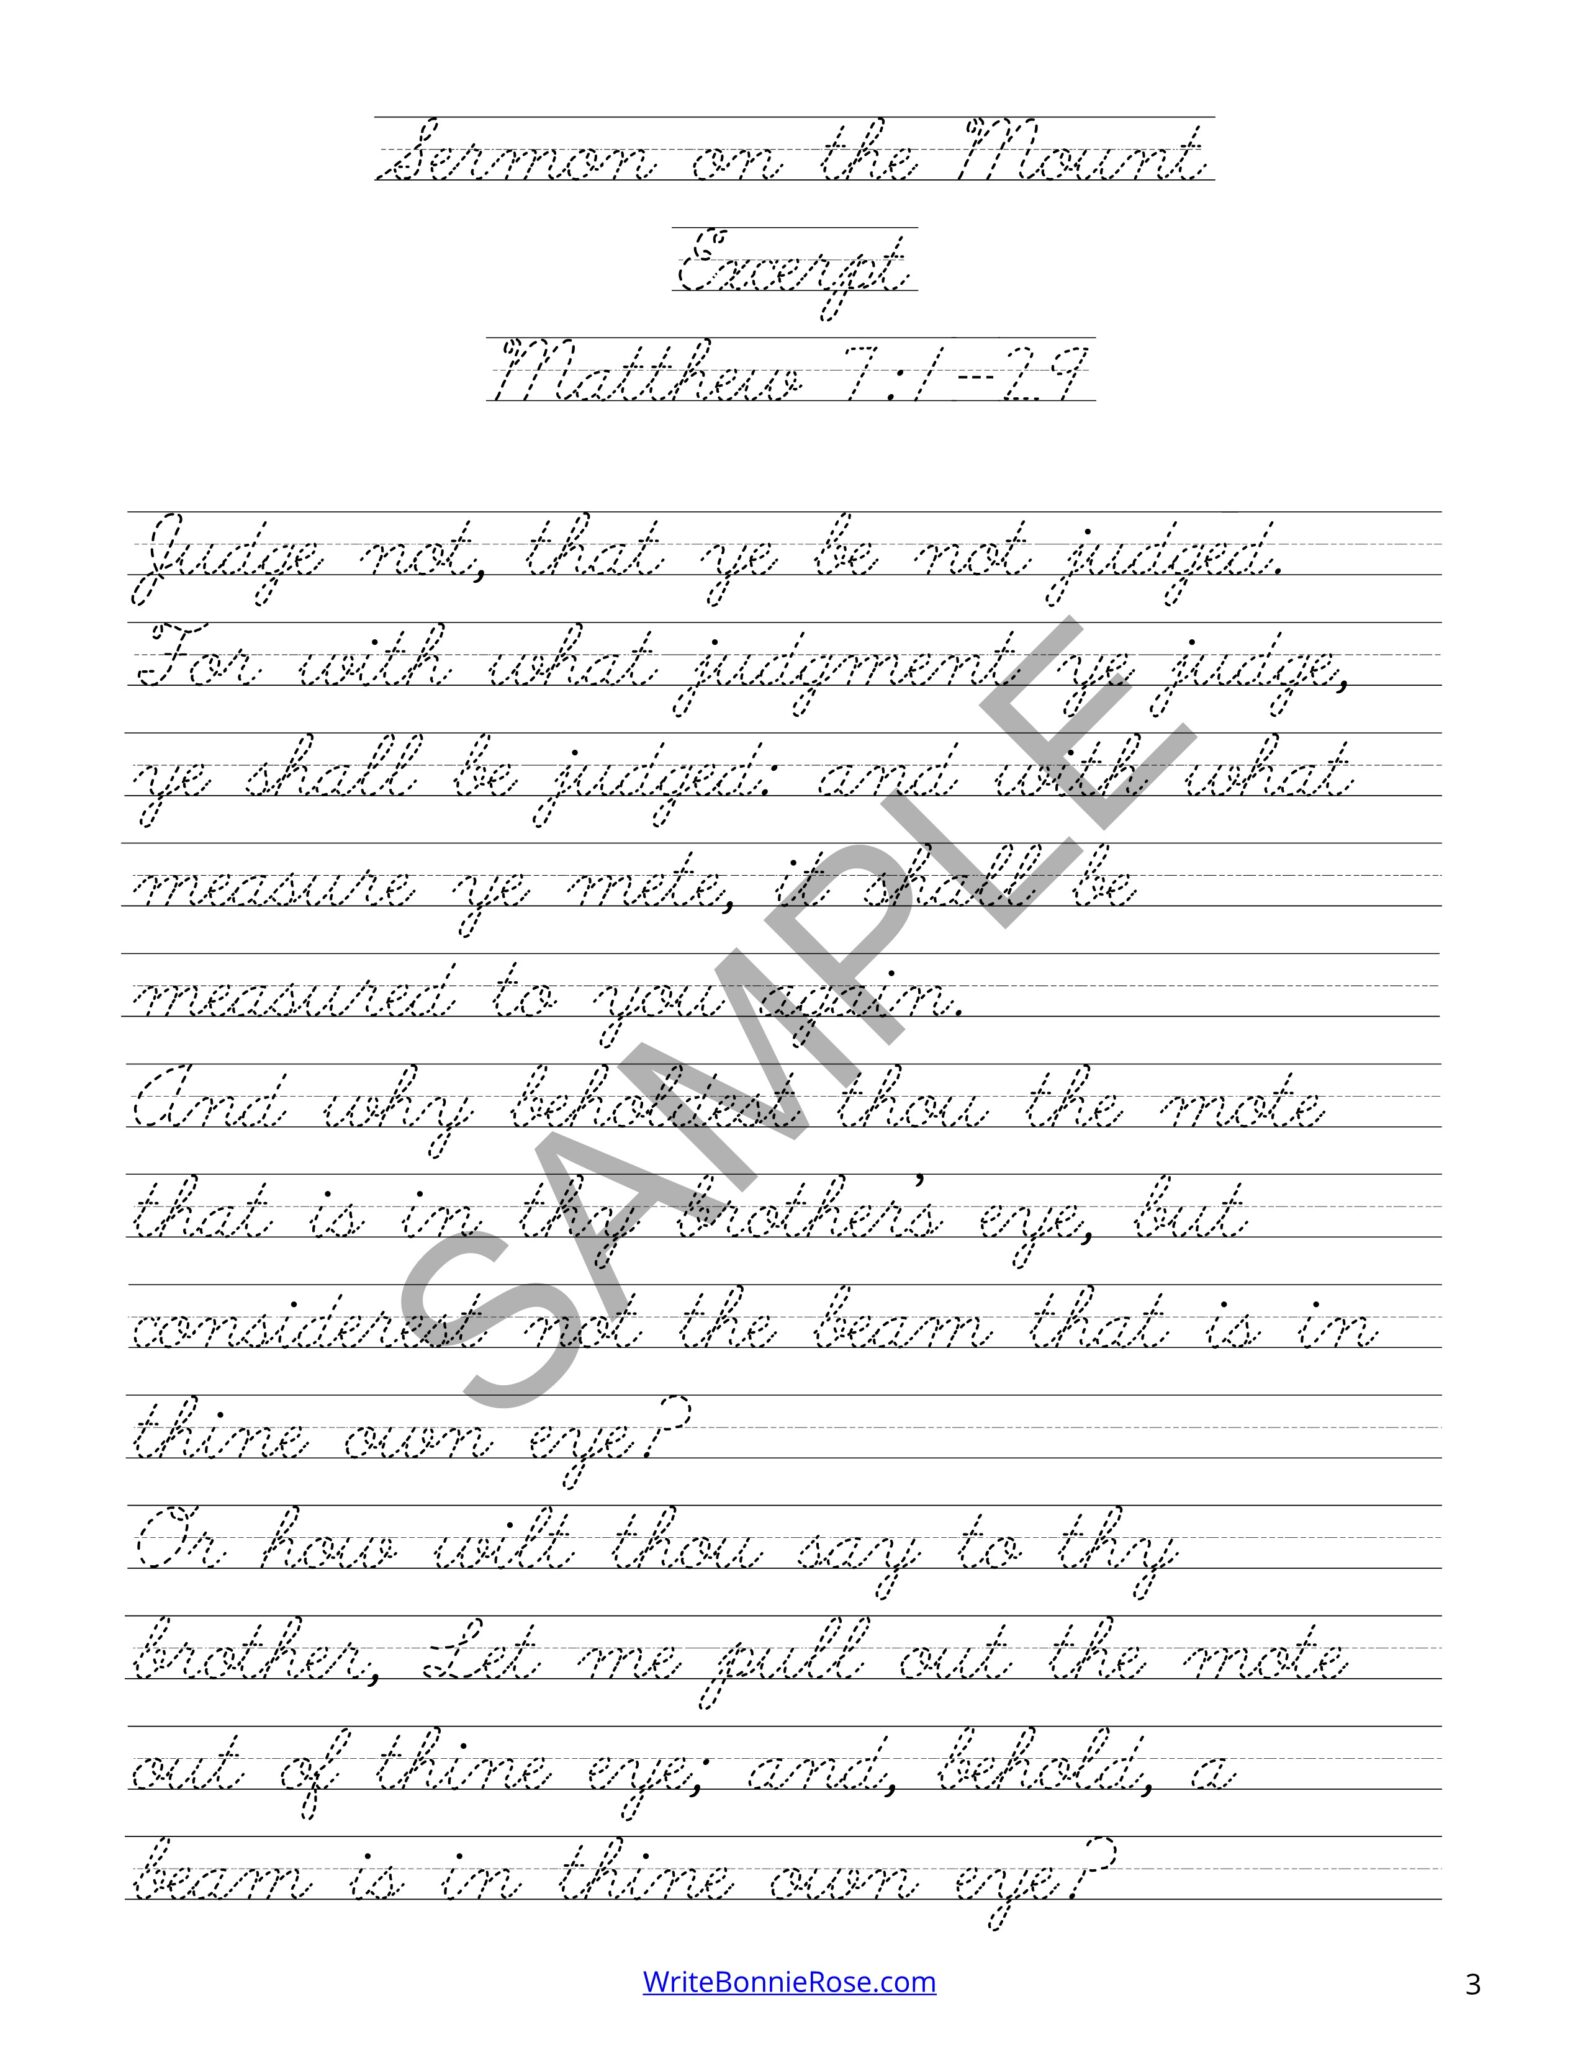 Sermon on the Mount
Excerpt
Matthew 7:1-29
Judge not, that ye be not judged.
For with what judgment ye judge,
ye shall be judged: and with what
measure ye mete, it shall be
measured to you again.
And why beholdest thou the mote
that is in thy brother's eye, but
considerest not the beam that is in
thine own eye?
Or how wilt thou say to thy
brother, Let me pull out the mote
out of thine eye; and, behold, a
beam is in thine own eye?
SAMPLE
WriteBonnieRose.com
3